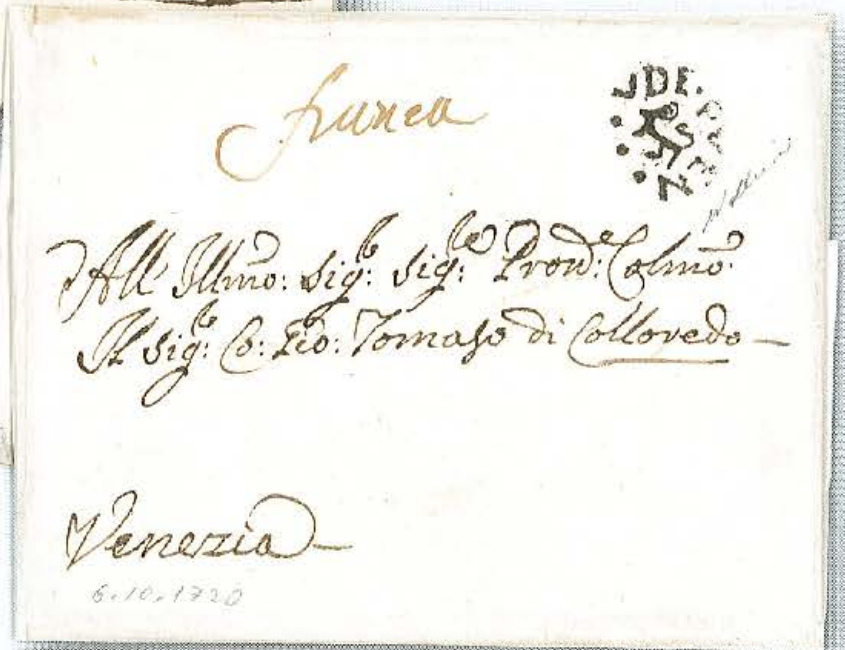 franca
All' Illmo: Sig:re Sig:re Pron:e Colmo:
Il Sig:re Co: Gio: Tomaso di Colloredo
Venezia
6.10.1720